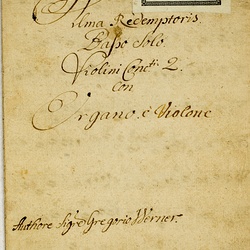 Alma Redemptoris
Basso Solo.
Violini Conc:ti 2.
con
Organo. è Violone
Authore Sigre Gregorio Werner.